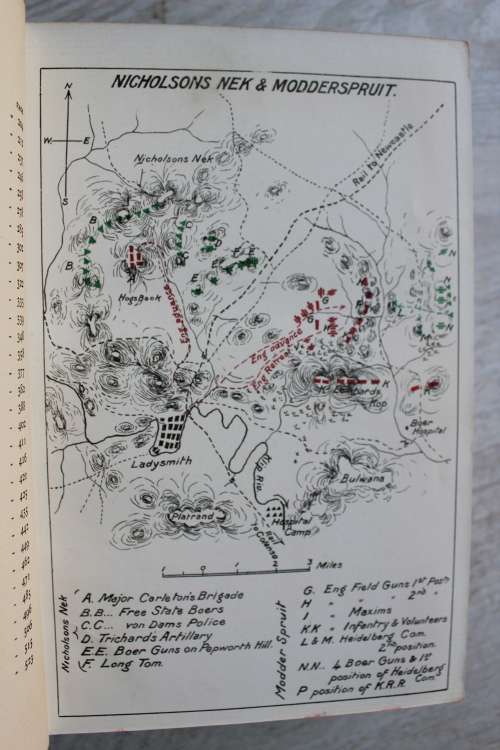 NICHOLSONS NEK & MODDERSPRUIT.
N
W
E
S
Nicholsons Nek
Rail to Newcastle
B
B
B
A
Hogs Back
Eng advance
G
Eng advance
Eng Retreat
K
K
Lombards
Kop
Boer
Hospital
Ladysmith
Klip Riv.
Bulwana
Platrand
Hospital
Camp
Rail
to Colenso
1 0 1 2 3 Miles
Nicholsons Nek
A. Major Carleton's Brigade
B.B... Free State Boers
C.C... von Dams Police
D. Trichard's Artillery
E.E. Boer Guns on Pepworth Hill.
F. Long Tom.
Modder Spruit
G. Eng Field Guns 1st Postn
H " " " 2nd "
I " Maxims
KK " Infantry & Volunteers
L & M. Heidelberg Com.
2nd position.
N.N. 4 Boer Guns & 1st
position of Heidelberg
Com
P position of K.R.R.